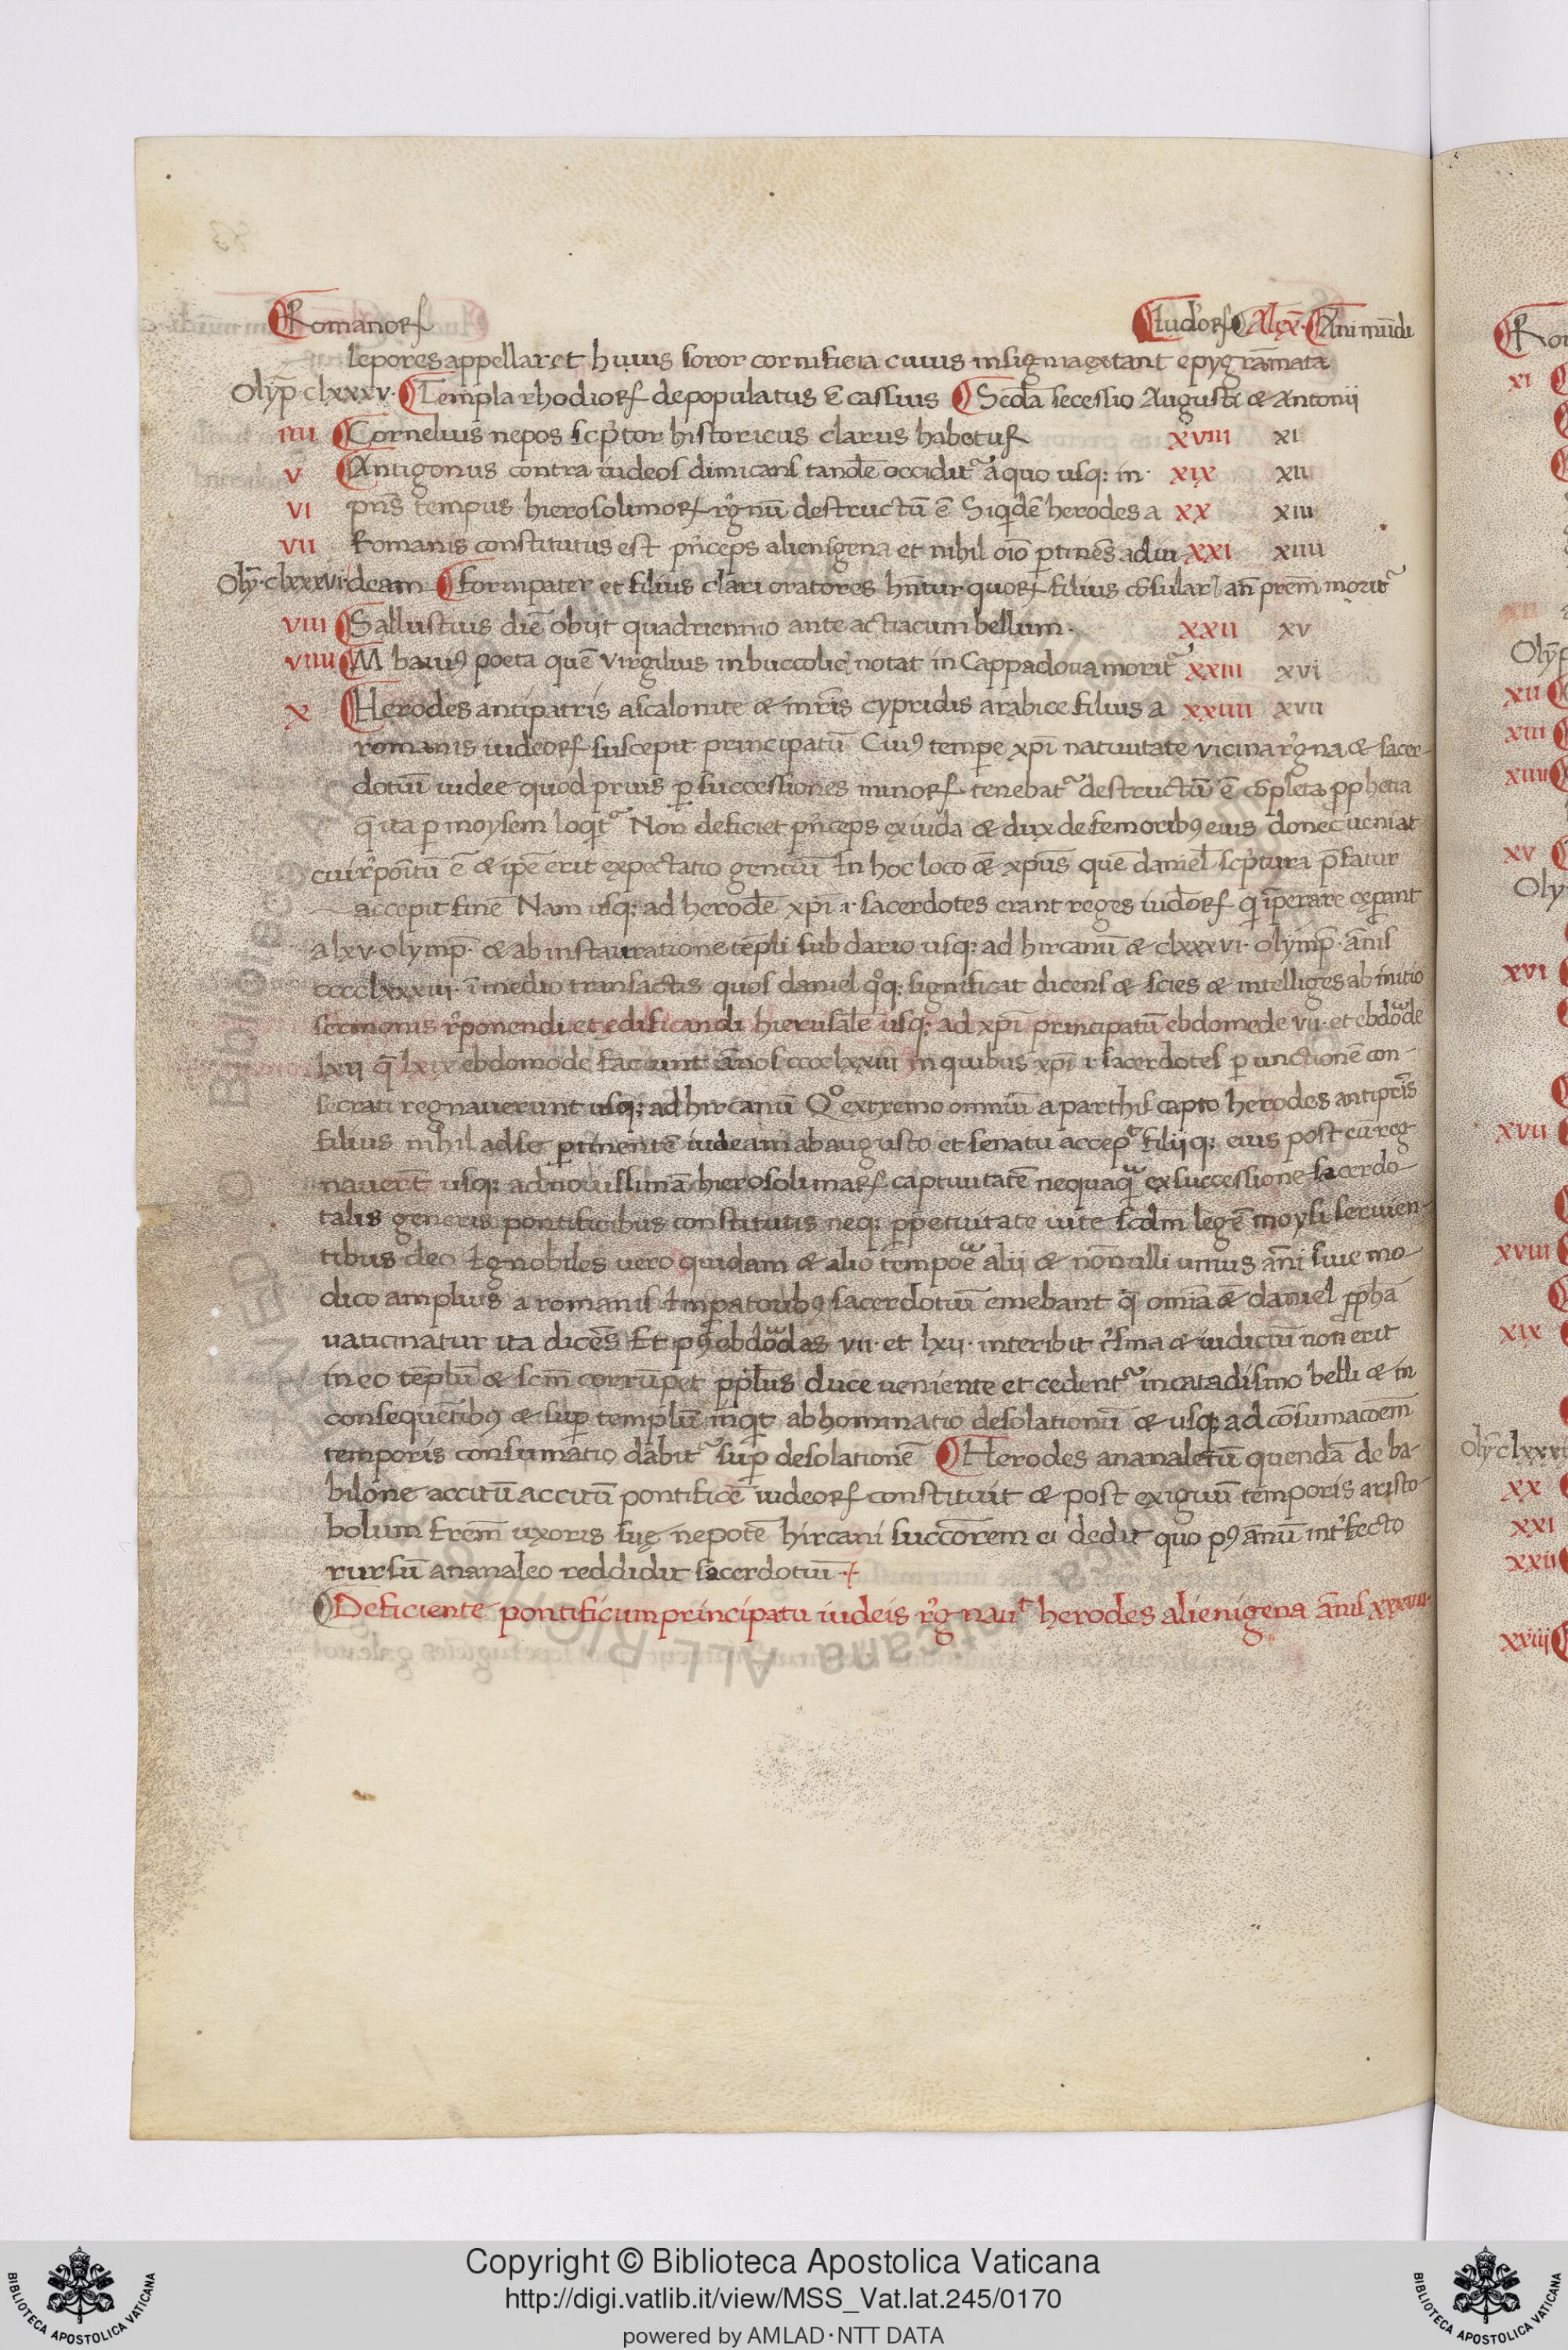 Romanoꝝ Iud'oꝝ Alex̄ Āni mūdi
lepores appellaret huius soror cornificia cuius insignia extant epygrāmata
Olyp̄ clxxxv· Templa rhodioꝝ depopulatus ē cassius Scd̄a secessio Augusti & Antonii
IIII Cornelius nepos scp̓tor historicus clarus habetuꝝ XVIII XI
V Antigonus contra iudeos dimicans tandē occidit᷑ a quo usq; in· XIX XII
VI pn̄s tempus hierosolimoꝝ rg̓nū destructū ē Siqidē herodes a XX XIII
VII Romanis constitutus est pn̓ceps alienigena et nihil oīo ꝑtinēs ad iu XXI XIIII
Olȳ· clxxxvi· deam Formpater et filius clari oratores hn̄tur quoꝝ filius cōsular̄ an̄ prem̄ morit᷑
VIII Sallustius diē obijt quadriennio ante actiacum bellum· XXII XV
VIIII M bauiꝰ poeta quē Virgilius in buccolic̓ notat in Cappadocia morit᷑ XXIII XVI
X Herodes antipatris ascalonite & mr̄is cypridis arabice filius a XXIIII XVII
romanis iudeoꝝ suscepit principatū Cuiꝰ tempe xp̄i natiuitate vicina rg̓na & sacer-
dotiū iudee quod prius ꝑ successiones minoꝝ tenebat᷑ destructū ē cōpleta ꝓphetia
q̄ ita ꝑ moysem loqit᷑ Non deficiet pn̓ceps ex iuda & dux de femoribꝰ eius donec ueniat
cui rp̓oitū ē & ip̄e erit expectatio gentiū In hoc loco & xp̄us quē daniel' scp̓tura p̄fatur
accepit finē Nam usq; ad herodē xp̄i ·i· sacerdotes erant reges iud̄oꝝ q iꝑare ceꝑant
a lxv· olymp̄· & ab instauratione tēpli sub dario usq; ad hircanū & clxxxvi· olymp̄· ānis
cccclxxxiii· ī medio transactis quos daniel q̊q; significat dicens & scies & intelliges ab initio
sermonis rp̓onendi et edificandi hierusalē usq; ad xp̄i principatū ebdomede vii· et ebdōde
lxii q̄ lxix ebdomode faciunt ānos cccclxxiii in quibus xp̄i ·i· sacerdotes ꝑ unctionē con-
secrati regnauerunt usq; ad hircanū Q̊ extremo omniū a parthis capto herodes antipr̄is
filius nihil ad se ꝑtinentē iudeam ab augusto et senatu accep᷑ filijq; eius post eū reg
nauert̄ usq; ad nouissimā hierosolimaꝝ captiuitatē nequaq̄ ex successione sacerdo-
talis generis pontificibus constitutis neq; ꝑpetuitate uite scd̄m legē moysi seruien-
tibus deo Ignobiles uero quidam & alio tempoē alii & nōnulli unius āni siue mo-
dico amplius a romanis Imꝑatoribꝰ sacerdotiū emebant q̄ omīa & daniel ꝓph̄a
uaticinatur ita dicēs Et pꝰ ebdōdas vii· et lxii· interibit cr̓sma & iudiciū non erit
in eo tēplū & scm̄ corrūpet pp̄lus duce ueniente et cedent᷑ in catadismo belli & in
consequētibꝰ & suꝑ templū inqit abhominatio desolationū & usq; ad cōsumacōem
temporis consumatio dabit᷑ suꝑ desolationē Herodes ananaletū quendā de ba-
bilone accitū accitū pontificē iudeoꝝ constituit & post exiguū temporis aristo-
bolum frem̄ uxoris suę nepotē hircani succōrem ei dedit quo pꝰ ānū int̓fecto
rursū ananaleo reddidit sacerdotiū·
Deficiente pontificum principatu iudeis rg̓nauit̄ herodes alienigena ānis xxxvii·
Copyright © Biblioteca Apostolica Vaticana
http://digi.vatlib.it/view/MSS_Vat.lat.245/0170
powered by AMLAD·NTT DATA
BIBLIOTECA APOSTOLICA VATICANA
BIBLIOTECA APOSTOLICA VATICANA